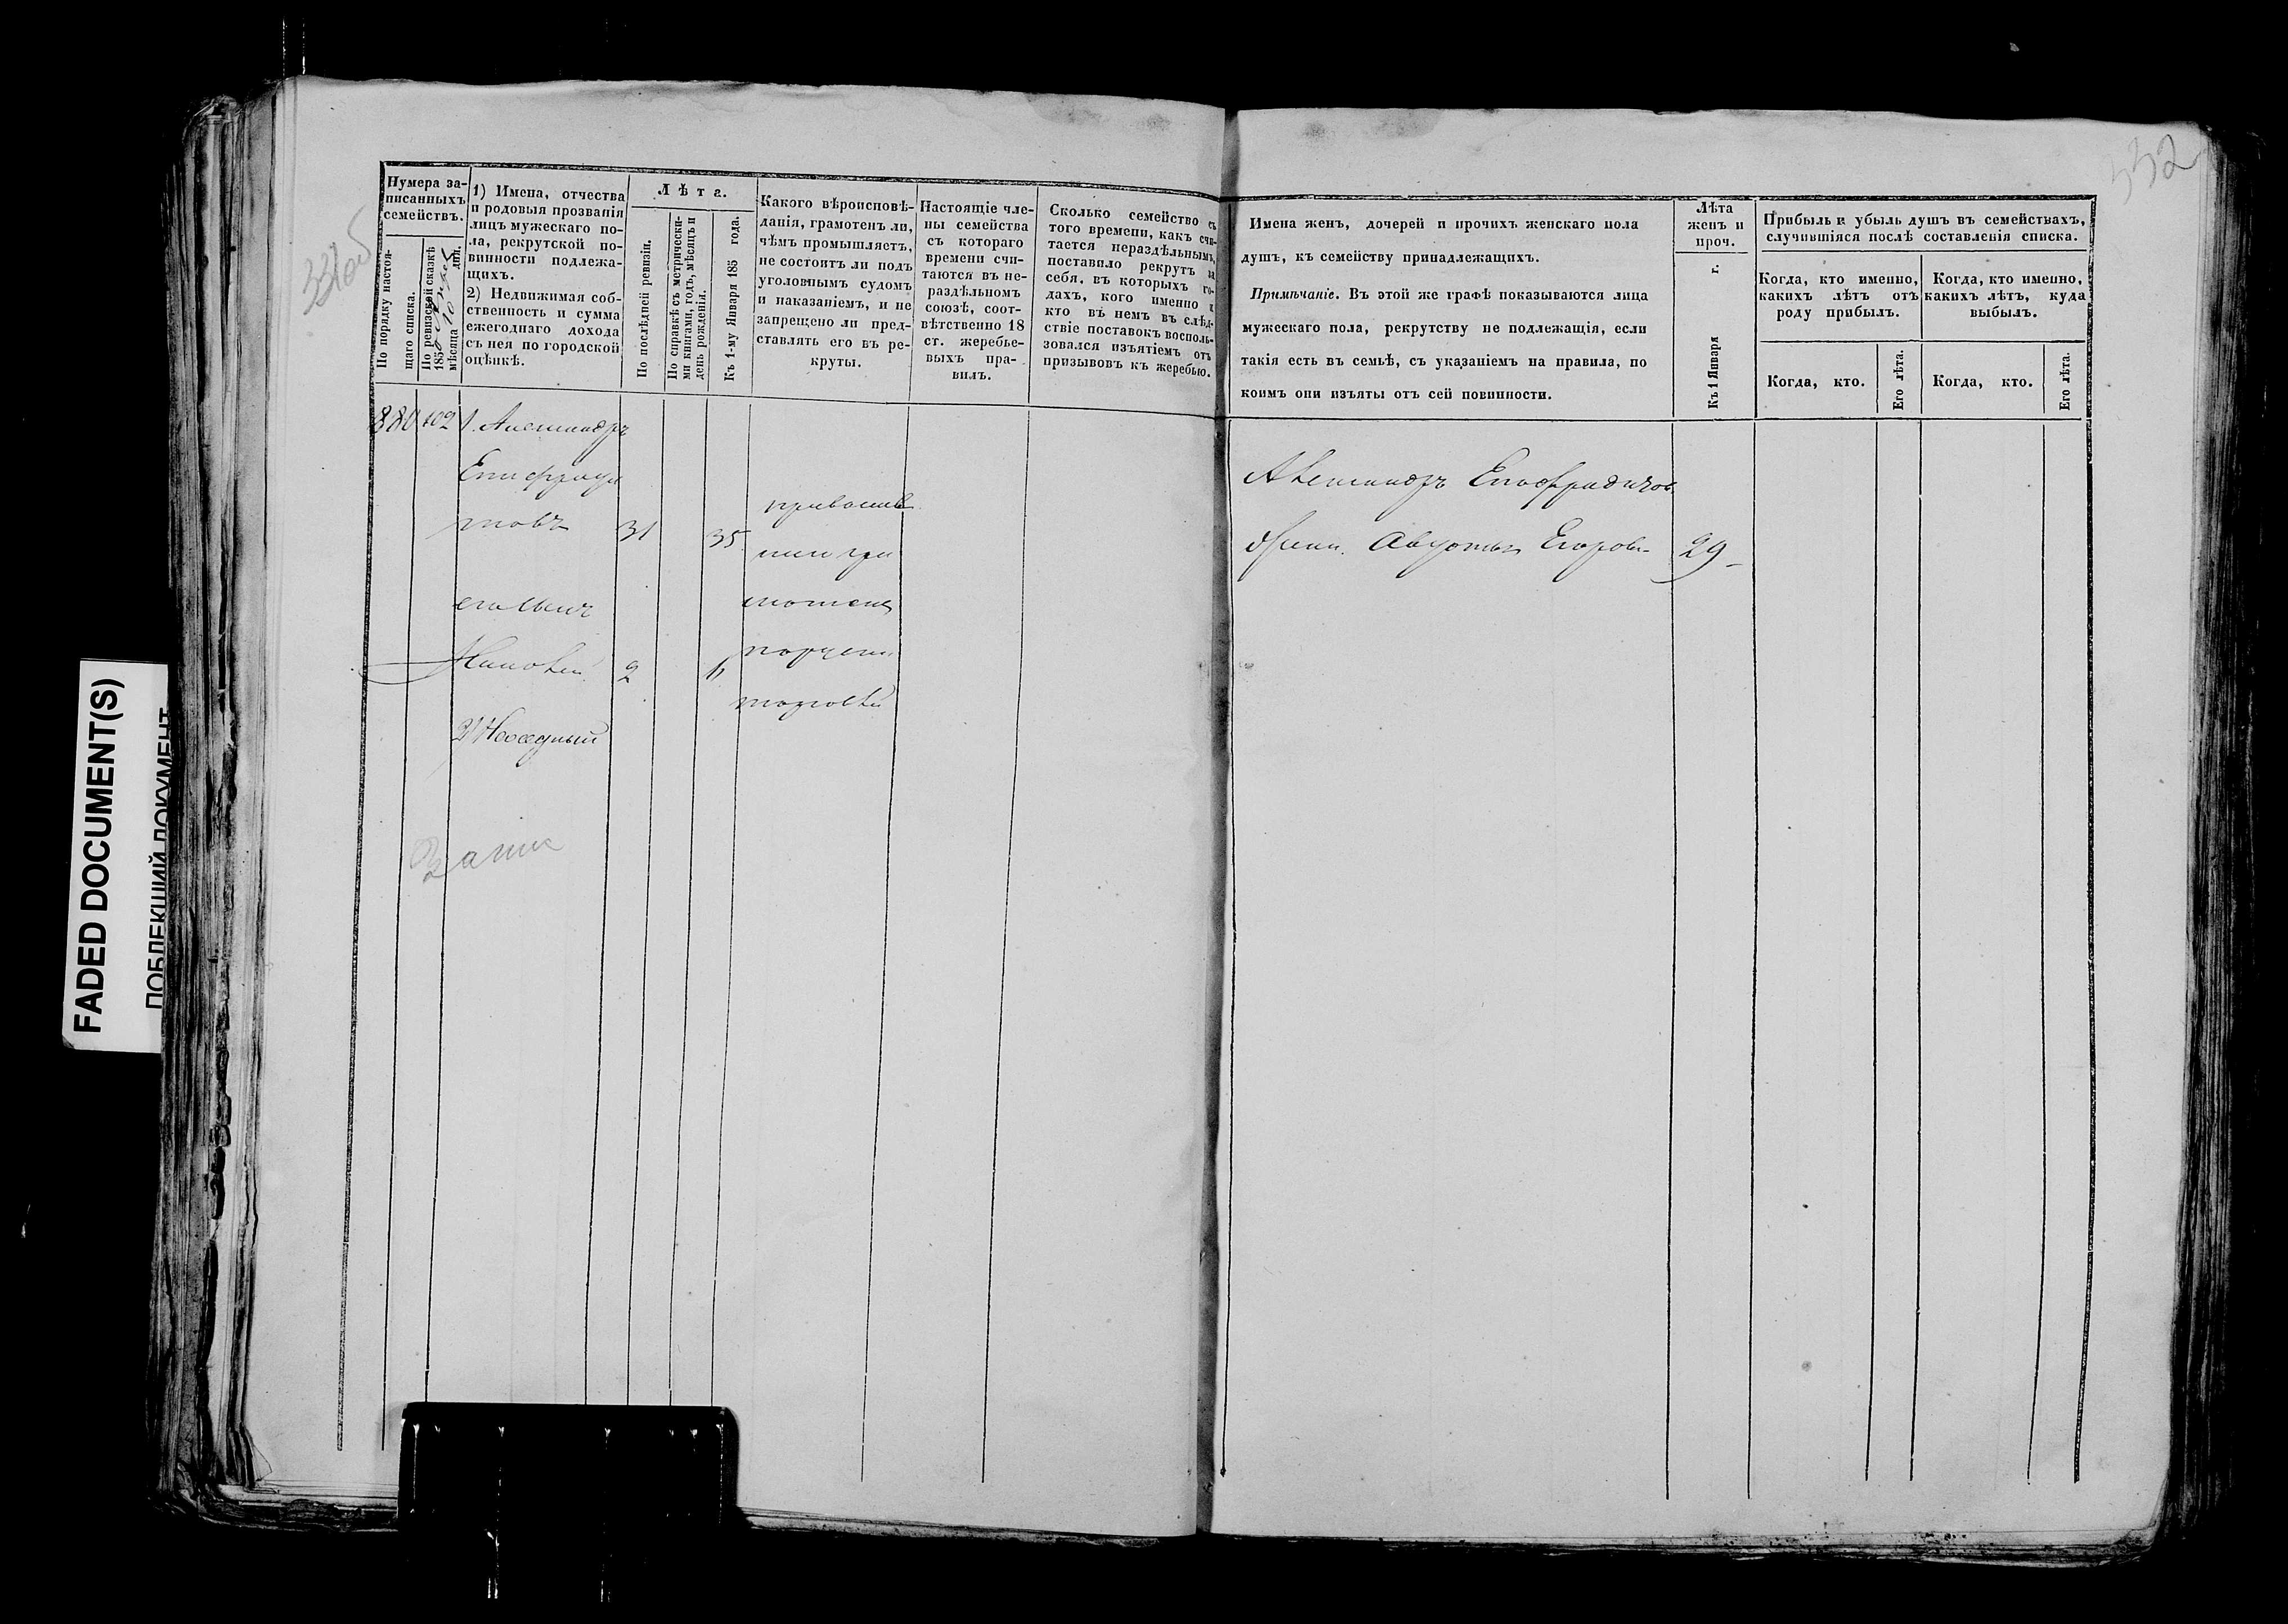 FADED DOCUMENT(S)
ПОБЛЕКШИЙ ДОКУМЕНТ
332
Нумера за-
писанныхъ
семействъ.
По порядку настоя-
щаго списка.
По ревизской сказкѣ
1850
мѣсяца 10 дня.
1) Имена, отчества
и родовыя прозванія
лицъ мужескаго по-
ла, рекрутской по-
винности подлежа-
щихъ.
2) Недвижимая соб-
ственность и сумма
ежегоднаго дохода
съ нея по городской
оцѣнкѣ.
Лѣта.
По послѣдней ревизіи.
По справкѣ съ метрически-
ми книгами, годъ, мѣсяцъ и
день рожденія.
Къ 1-му Января 185 года.
Какого вѣроисповѣ-
данія, грамотенъ ли,
чѣмъ промышляетъ,
не состоитъ ли подъ
уголовнымъ судомъ
и наказаніемъ, и не
запрещено ли пред-
ставлять его въ ре-
круты.
Настоящіе чле-
ны семейства
съ котораго
времени счи-
таются въ не-
раздѣльномъ
союзѣ, соот-
вѣтственно 18
ст. жеребье-
выхъ пра-
вилъ.
Сколько семейство съ
того времени, какъ счи-
тается нераздѣльнымъ,
поставило рекрутъ за
себя, въ которыхъ го-
дахъ, кого именно и
кто въ немъ въ слѣд-
ствіе поставокъ восполь-
зовался изъятіемъ отъ
призывовъ къ жеребью.
880 102 1. Александръ
Епафроди
товъ 31 35
его сынъ
2 6
грa
мотенъ
торговлей
Имена женъ, дочерей и прочихъ женскаго пола
душъ, къ семейству принадлежащихъ.
Примѣчаніе. Въ этой же графѣ показываются лица
мужескаго пола, рекрутству не подлежащія, если
такія есть въ семьѣ, съ указаніемъ на правила, по
коимъ они изъяты отъ сей повинности.
Лѣта
женъ и
проч.
Къ 1 Января г.
Прибыль и убыль душъ въ семействахъ,
случившіяся послѣ составленія списка.
Когда, кто именно,
какихъ лѣтъ отъ
роду прибылъ.
Когда, кто именно,
какихъ лѣтъ, куда
выбылъ.
Когда, кто.
Его лѣта.
Когда, кто.
Его лѣта.
Александръ
жена Авдотья Егоров. 29